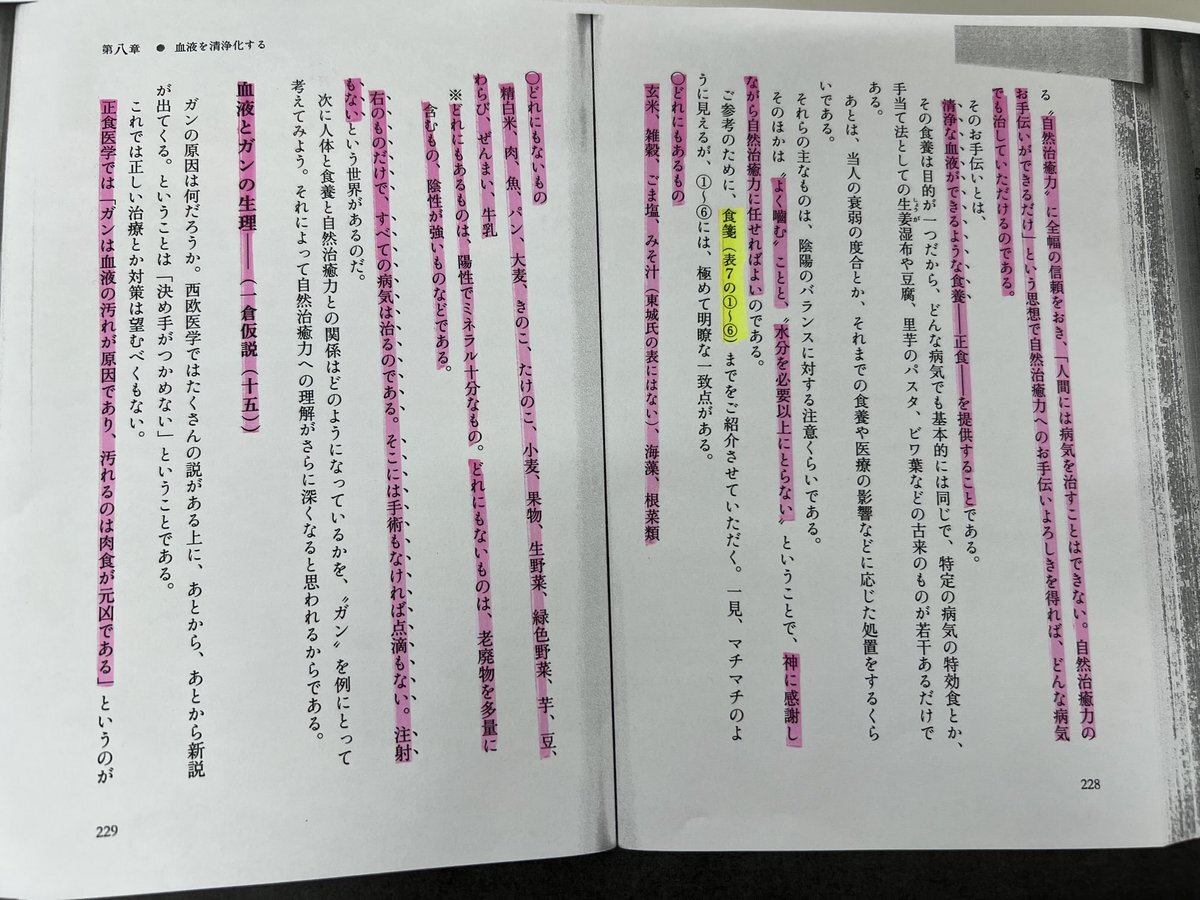 る〝自然治癒力〟に全幅の信頼をおき、「人間には病気を治すことはできない。自然治癒力の
お手伝いができるだけ」という思想で自然治癒力へのお手伝いよろしきを得れば、どんな病気
でも治していただけるのである。
そのお手伝いとは、
清浄な血液ができるような食養――正食――を提供することである。
その食養は目的が一つだから、どんな病気でも基本的には同じで、特定の病気の特効食とか、
手当て法としての生姜湿布や豆腐、里芋のパスタ、ビワ葉などの古来のものが若干あるだけで
しょうが
ある。
あとは、当人の衰弱の度合とか、それまでの食養や医療の影響などに応じた処置をするくら
いである。
それらの主なものは、陰陽のバランスに対する注意くらいである。
そのほかは〝よく嚙む〟ことと、〝水分を必要以上にとらない〟ということで、神に感謝し
ながら自然治癒力に任せればよいのである。
ご参考のために、食箋(表7の①〜⑥)までをご紹介させていただく。一見、マチマチのよ
うに見えるが、①〜⑥には、極めて明瞭な一致点がある。
○どれにもあるもの
玄米、雑穀、ごま塩、みそ汁(東城氏の表にはない)、海藻、根菜類
228
第八章 ● 血液を清浄化する
○どれにもないもの
精白米、肉、魚、パン、大麦、きのこ、たけのこ、小麦、果物、生野菜、緑色野菜、芋、豆、
わらび、ぜんまい、牛乳
※どれにもあるものは、陽性でミネラル十分なもの。どれにもないものは、老廃物を多量に
含むもの、陰性が強いものなどである。
右のものだけで、すべての病気は治るのである。そこには手術もなければ点滴もない。注射
もない、という世界があるのだ。
次に人体と食養と自然治癒力との関係はどのようになっているかを、〝ガン〟を例にとって
考えてみよう。それによって自然治癒力への理解がさらに深くなると思われるからである。
血液とガンの生理――(一倉仮説(十五))
ガンの原因は何だろうか。西欧医学ではたくさんの説がある上に、あとから、あとから新説
が出てくる。ということは「決め手がつかめない」ということである。
これでは正しい治療とか対策は望むべくもない。
正食医学では「ガンは血液の汚れが原因であり、汚れるのは肉食が元凶である」というのが
229